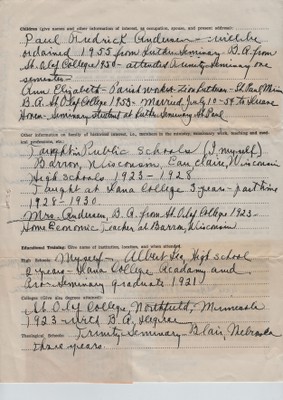 Children (give names and other information of interest, as occupation, spouse, and present address):
Paul Fredrick Andersen - will be
ordained 1955 from Luther Seminary - B.A. from
St. Olaf College 1950 - attended Trinity Seminary one
semester -
Ann Elizabeth - Parish worker Zion Lutheran - St. Paul Minn
B.A. St. Olaf College 1953 - Married July 10 - 54 to
Seminary student at Luther Seminary St. Paul
Other information on family of historical interest, i.e., members in the ministry, missionary work, teaching and medical profession, etc.:
Taught in Public Schools (I myself)
Barron, Wisconsin, Eau Claire, Wisconsin
High Schools 1923 - 1928
Taught at Dana College 2 years - part time
1928 - 1930.
Mrs. Andersen, B.A. from St. Olaf College 1923 -
Home Economic Teacher at Barron, Wisconsin
Educational Training: Give name of institution, location, and years attended.
High School: Myself - Albert Lea, High School
2 years - Dana College Academy and
Pro-Seminary graduate 1921
Colleges (Give also degrees attained):
St. Olaf College, Northfield, Minnesota
1923 - with B.A. degree
Theological Schools: Trinity Seminary - Blair, Nebraska
three years.